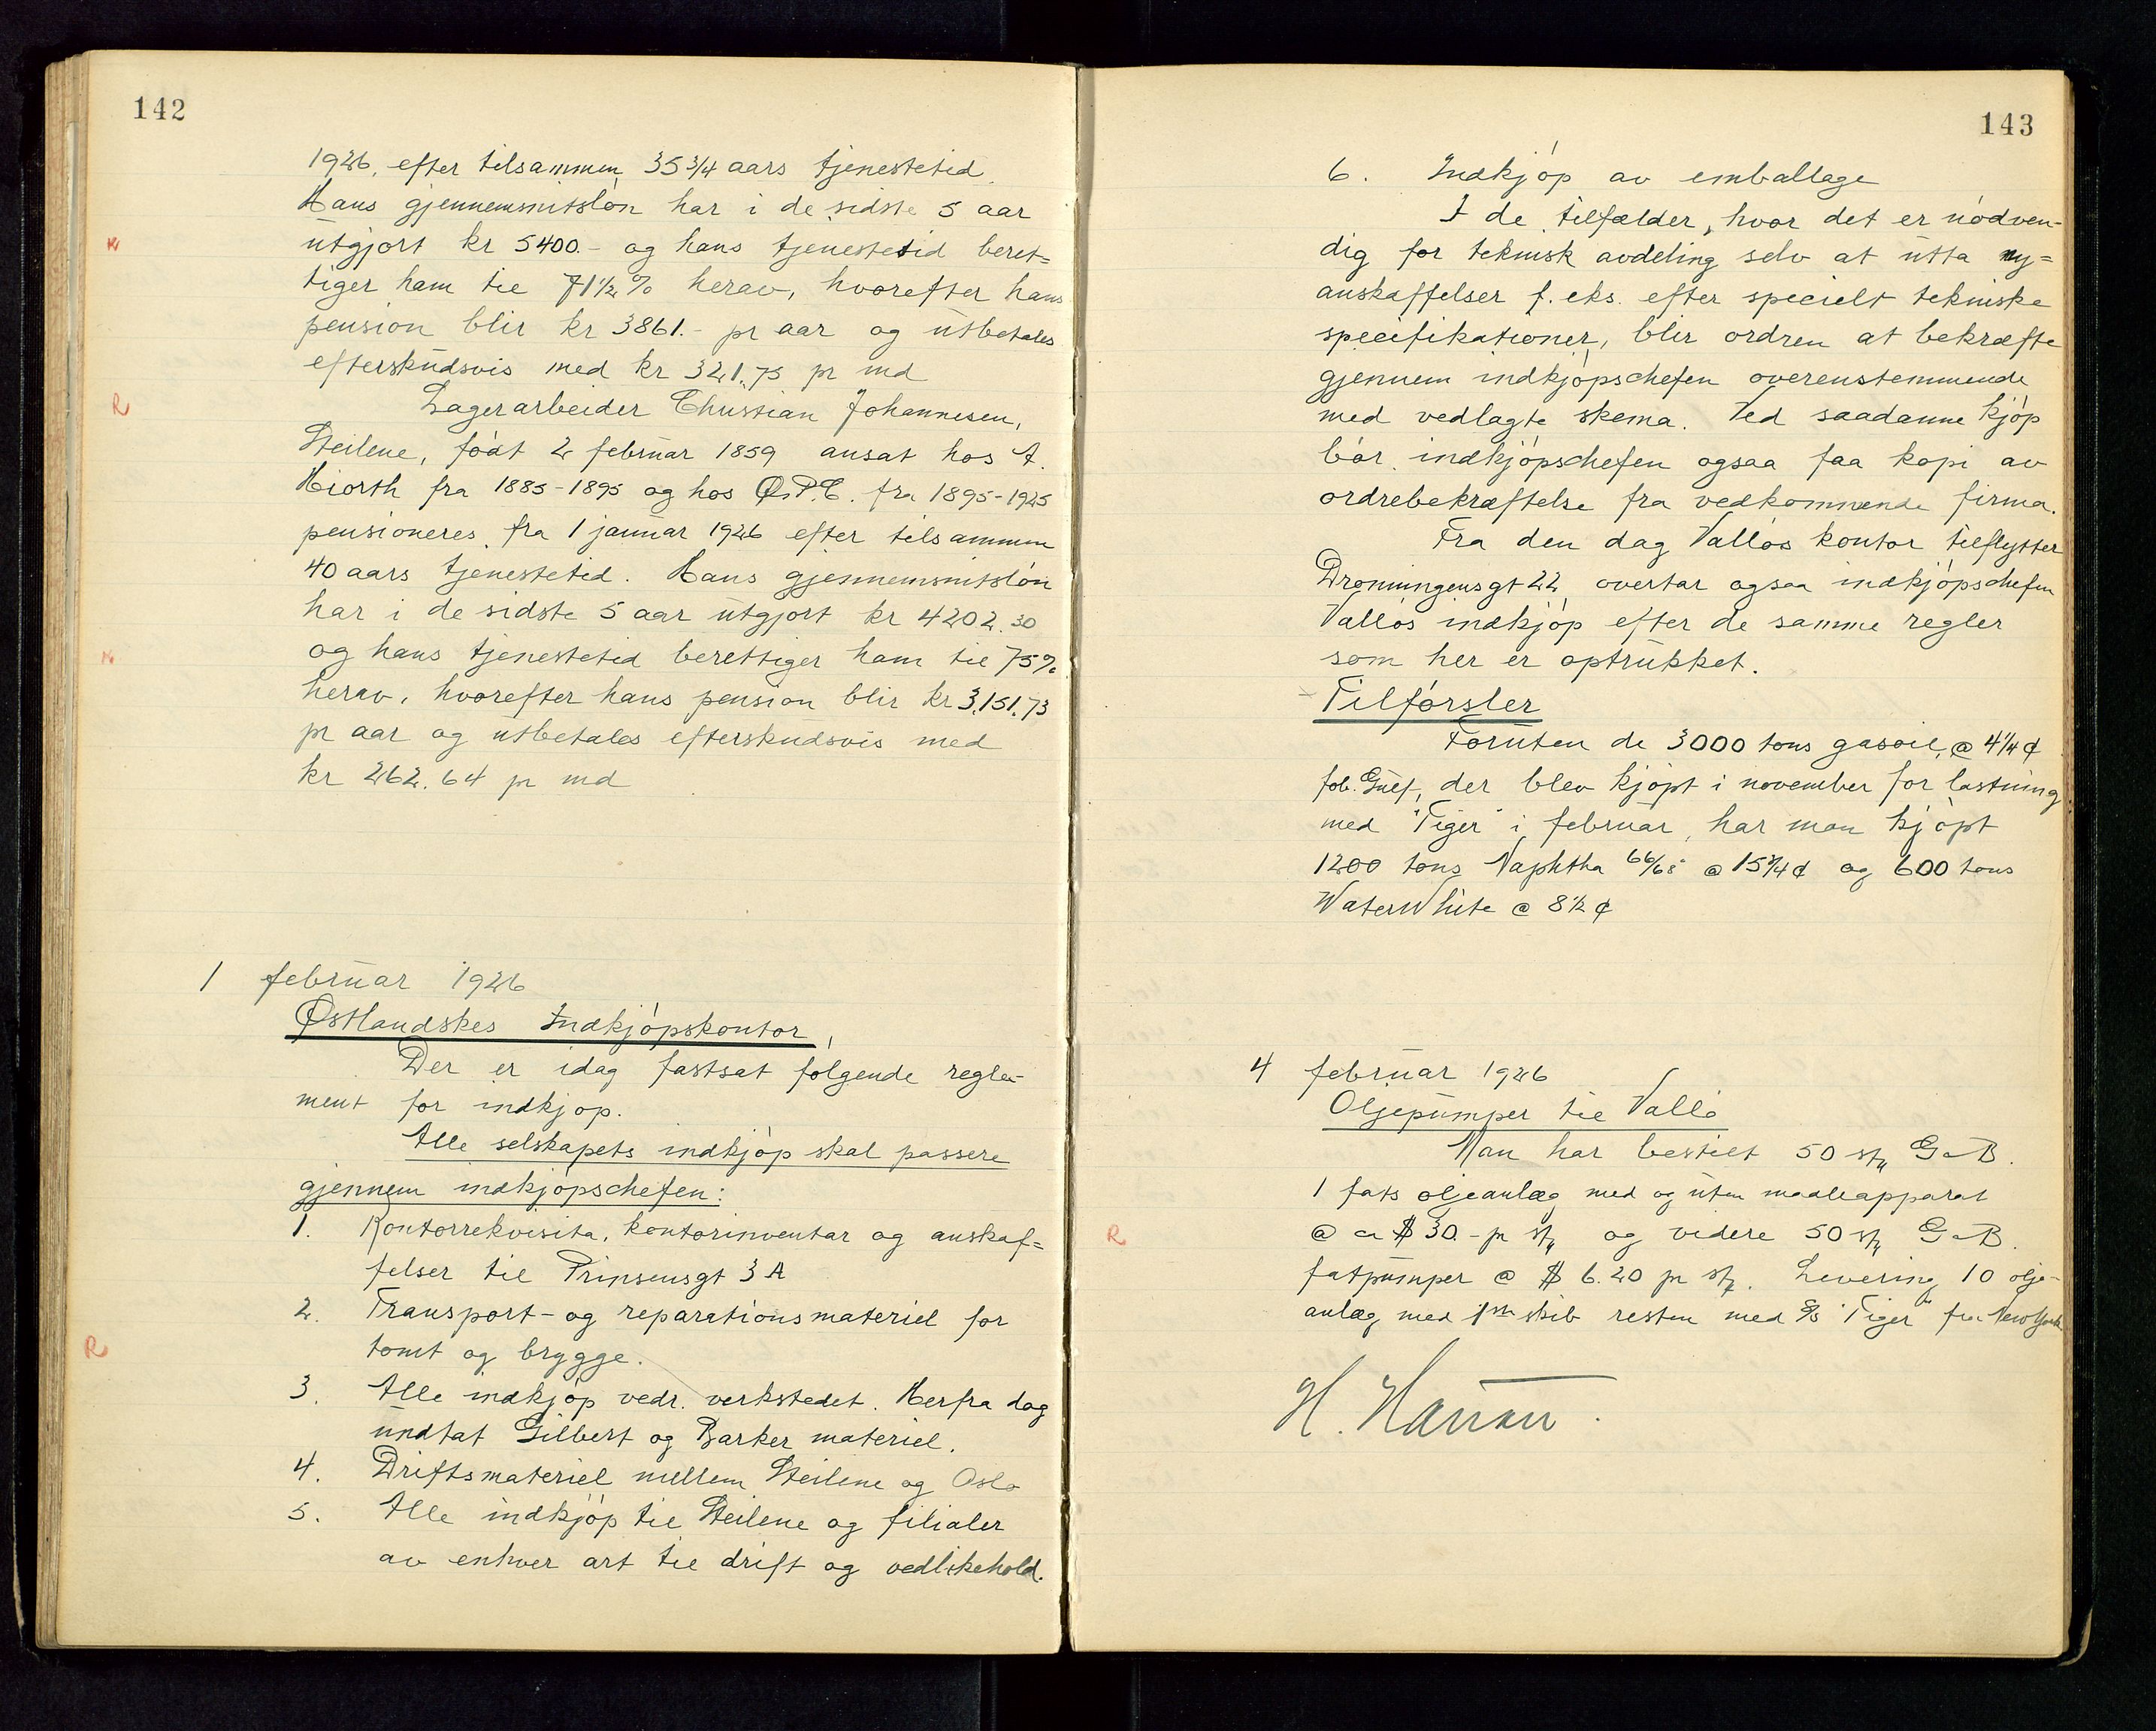 142
1926, efter tilsammen 35 3/4 aars tjenestetid.
Hans gjennemsnitsløn har i de sidste 5 aar
utgjort kr 5400.- og hans tjenestetid beret=
tiger ham til 71 1/2 % herav, hvorefter hans
pension blir kr 3861.- pr aar og utbetales
efterskudsvis med kr 321.75 pr md
R
Lagerarbeider Christian Johannesen,
Steilene, født 2 februar 1859 ansat hos A.
Hiorth fra 1885-1895 og hos Ø.P.C. fra 1895-1925
pensioneres fra 1 januar 1926 efter tilsammen
40 aars tjenestetid. Hans gjennemsnitsløn
har i de sidste 5 aar utgjort kr 4202.30
og hans tjenestetid berettiger ham til 75%
herav, hvorefter hans pension blir kr 3.151.73
pr aar og utbetales efterskudsvis med
kr 262.64 pr md
1 februar 1926
Østlandskes Indkjøpskontor,
Der er idag fastsat følgende regle-
ment for indkjøp.
Alle selskapets indkjøp skal passere
gjennem indkjøpschefen:
1. Kontorrekvisita, kontorinventar og anskaf=
felser til Prinsensgt 3A
2. Transport- og reparationsmateriel for
R
tomt og brygge.
3. Alle indkjøp vedr. verkstedet. Herfra dog
undtat Gilbert og Barker materiel.
4. Driftsmateriel mellem Steilene og Oslo
5. Alle indkjøp til Steilene og filialer
av enhver art til drift og vedlikehold.
143
6. Indkjøp av emballage
I de tilfælder, hvor det er nødven-
dig for teknisk avdeling selv at utta ny=
anskaffelser f. eks. efter specielt tekniske
specifikationer, blir ordren at bekræfte
gjennem indkjøpschefen overenstemmende
med vedlagte skema. Ved saadanne kjøp
bør indkjøpschefen ogsaa faa kopi av
ordrebekræftelse fra vedkommende firma.
Fra den dag Valløs kontor tilflytter
Dronningensgt 22 overtar ogsaa indkjøpschefen
Valløs indkjøp efter de samme regler
som her er optrukket.
Tilførsler
Foruten de 3000 tons gasoil, @ 4 1/4 ¢
fob. Gulf, der blev kjøpt i november for lastning
med "Tiger" i februar, har man kjøpt
1200 tons Naphtha 66/68 @ 15 3/4 ¢ og 600 tons
WaterWhite @ 8 1/2 ¢
4 februar 1926
Oljepumper til Vallø
Man har bestilt 50 stk G & B.
1 fats oljeanlæg med og uten maaleapparat
R
@ ca $ 30.- pr stk og videre 50 stk G & B.
fatpumper @ $ 6.20 pr stk. Levering 10 olje-
anlæg med 1ste skib resten med S/S "Tiger" fra New York